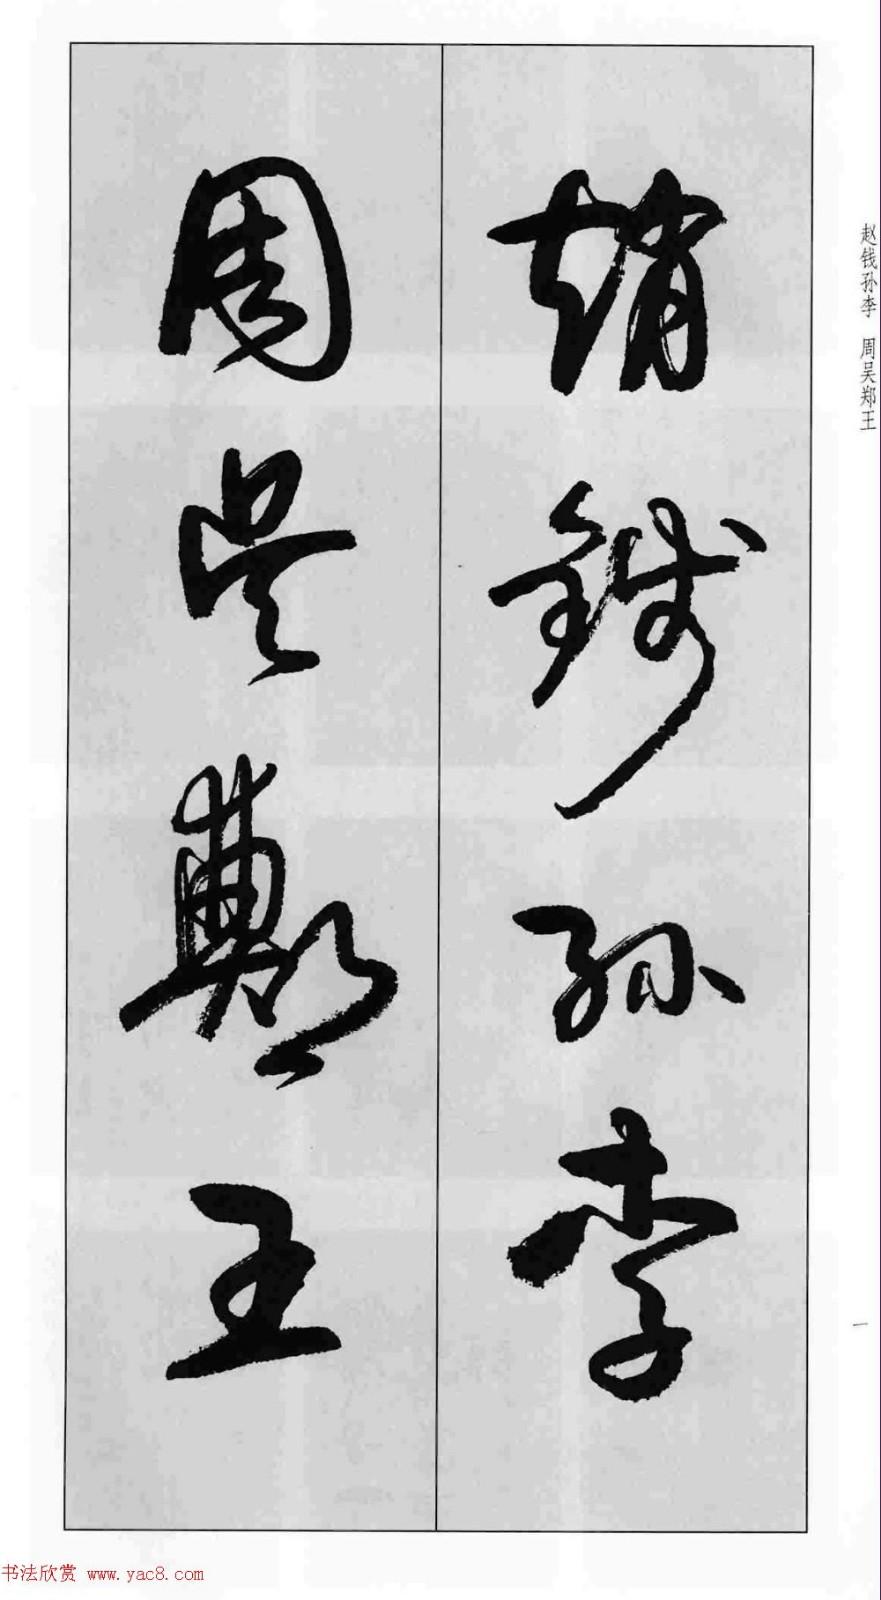 趙錢孫李
周吴鄭王
赵钱孙李 周吴郑王
一
书法欣赏 www.yac8.com